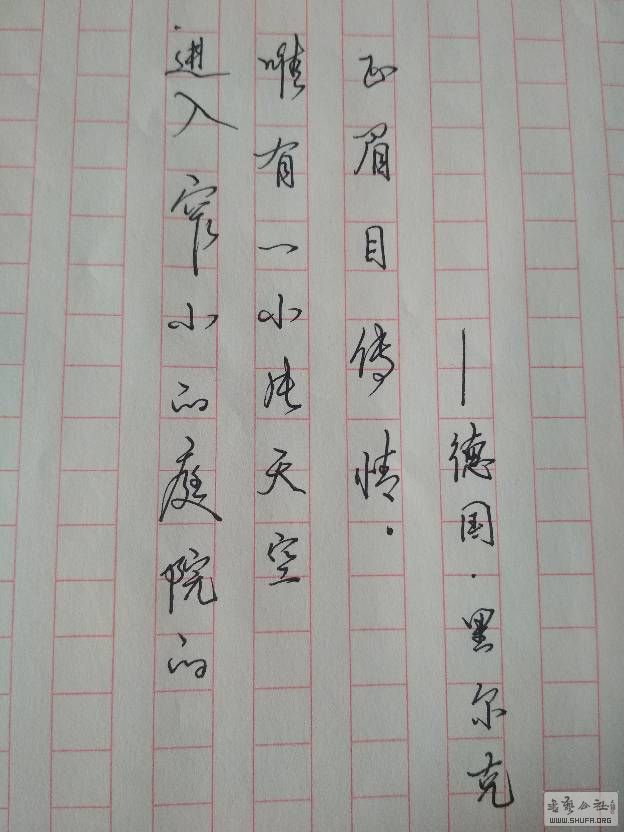 进入窄小的庭院的
唯有一小块天空
正眉目传情.
—德国·黑尔克
书艺公社
WWW.SHUFA.ORG